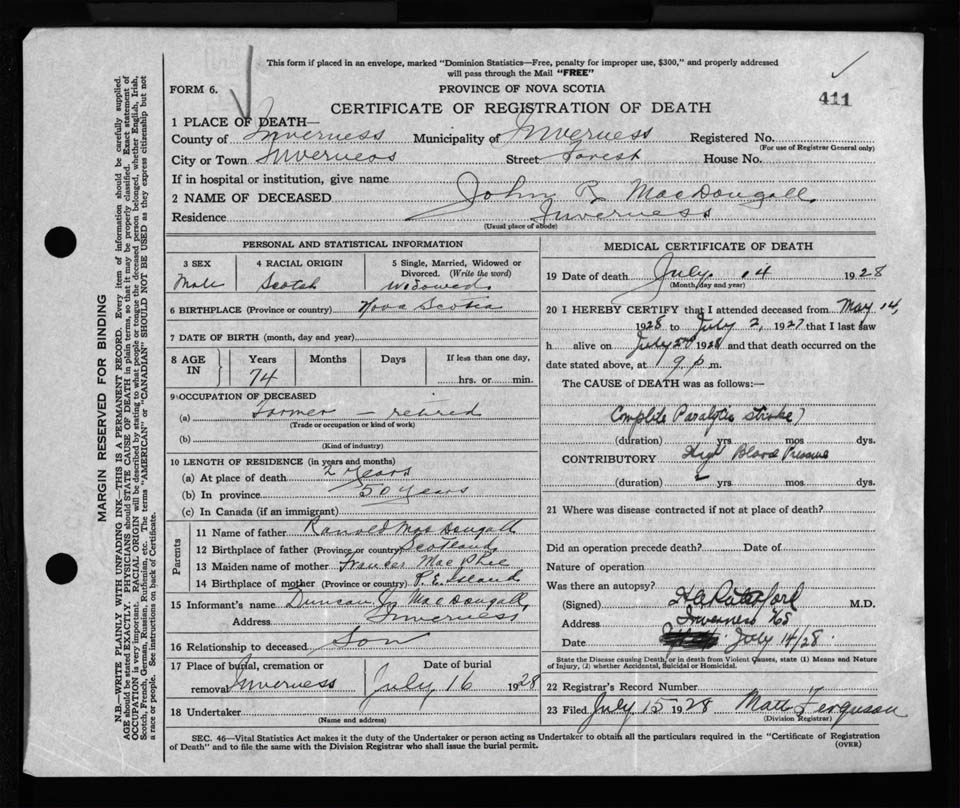 This form if placed in an envelope, marked "Dominion Statistics—Free, penalty for improper use, $300," and properly addressed
will pass through the Mail "FREE"
FORM 6.
PROVINCE OF NOVA SCOTIA
CERTIFICATE OF REGISTRATION OF DEATH
411
1 PLACE OF DEATH—
County of Inverness Municipality of Inverness Registered No.
(For use of Registrar General only)
City or Town Inverness Street Forest House No.
If in hospital or institution, give name
2 NAME OF DECEASED John R MacDougall
Residence Inverness
(Usual place of abode)
PERSONAL AND STATISTICAL INFORMATION
3 SEX 4 RACIAL ORIGIN 5 Single, Married, Widowed or
Divorced. (Write the word)
Male Scotch Widowed
6 BIRTHPLACE (Province or country) Nova Scotia
7 DATE OF BIRTH (month, day and year)
8 AGE IN Years Months Days If less than one day,
74 hrs. or min.
9 OCCUPATION OF DECEASED
(a) Farmer — retired
(Trade or occupation or kind of work)
(b)
(Kind of industry)
10 LENGTH OF RESIDENCE (in years and months)
(a) At place of death 2 years
(b) In province 50 years
(c) In Canada (if an immigrant)
Parents
11 Name of father Ranold MacDougall
12 Birthplace of father (Province or country) Scotland
13 Maiden name of mother Frances MacPhee
14 Birthplace of mother (Province or country) P.E. Island
15 Informant's name Duncan J MacDougall
Address Inverness
16 Relationship to deceased Son
17 Place of burial, cremation or Date of burial
removal Inverness July 16 1928
18 Undertaker
(Name and address)
MEDICAL CERTIFICATE OF DEATH
19 Date of death July 14 1928
(Month, day and year)
20 I HEREBY CERTIFY that I attended deceased from May 14,
1928 to July 2, 1927 that I last saw
h alive on July 1928 and that death occurred on the
date stated above, at 9 p m.
The CAUSE of DEATH was as follows:—
Complete Paralytic Stroke
(duration) yrs mos dys.
CONTRIBUTORY High Blood Pressure
(duration) 2 yrs mos dys.
21 Where was disease contracted if not at place of death?
Did an operation precede death? Date of
Nature of operation
Was there an autopsy?
(Signed) M.D.
Address Inverness NS
Date July 14/28.
State the Disease causing Death, or in death from Violent Causes, state (1) Means and Nature
of Injury, (2) whether Accidental, Suicidal or Homicidal.
22 Registrar's Record Number
23 Filed July 15 1928 Matt Ferguson
(Division Registrar)
SEC. 46—Vital Statistics Act makes it the duty of the Undertaker or person acting as Undertaker to obtain all the particulars required in the "Certificate of Registration
of Death" and to file the same with the Division Registrar who shall issue the burial permit.
(OVER)
MARGIN RESERVED FOR BINDING
N.B.—WRITE PLAINLY WITH UNFADING INK—THIS IS A PERMANENT RECORD. Every item of information should be carefully supplied.
AGE should be stated EXACTLY. PHYSICIANS should STATE CAUSE OF DEATH in plain terms, so that it may be properly classified. Exact statement of
OCCUPATION is very important. RACIAL ORIGIN will be described by stating to what people or tongue the deceased person belonged, whether English, Irish,
Scotch, French, German, Russian, Ruthenian, etc. The terms "AMERICAN" or "CANADIAN" SHOULD NOT BE USED as they express citizenship but not
a race or people. See instructions on back of Certificate.